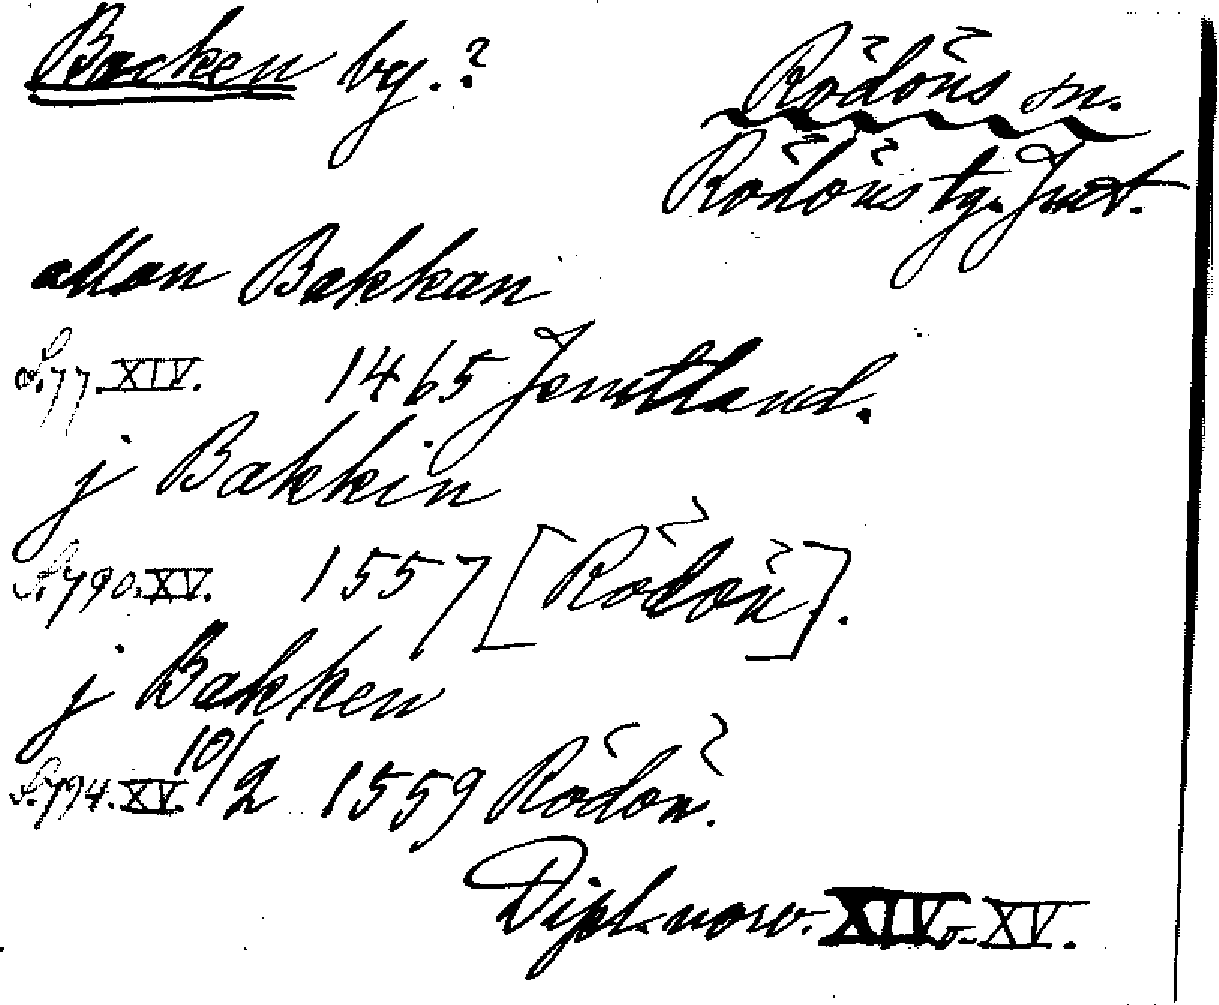 Backen by.?
Rödöns sn.
Rödöns tg. Jmt.
allan Bakkan
S. 77. XIV. 1465 Jemtland.
j Bakkin
S. 790. XV. 1557 [Rödön].
j Bakken
S. 794. XV. 10/2 1559 Rödön.
Dipl. norv. XIV o. XV.